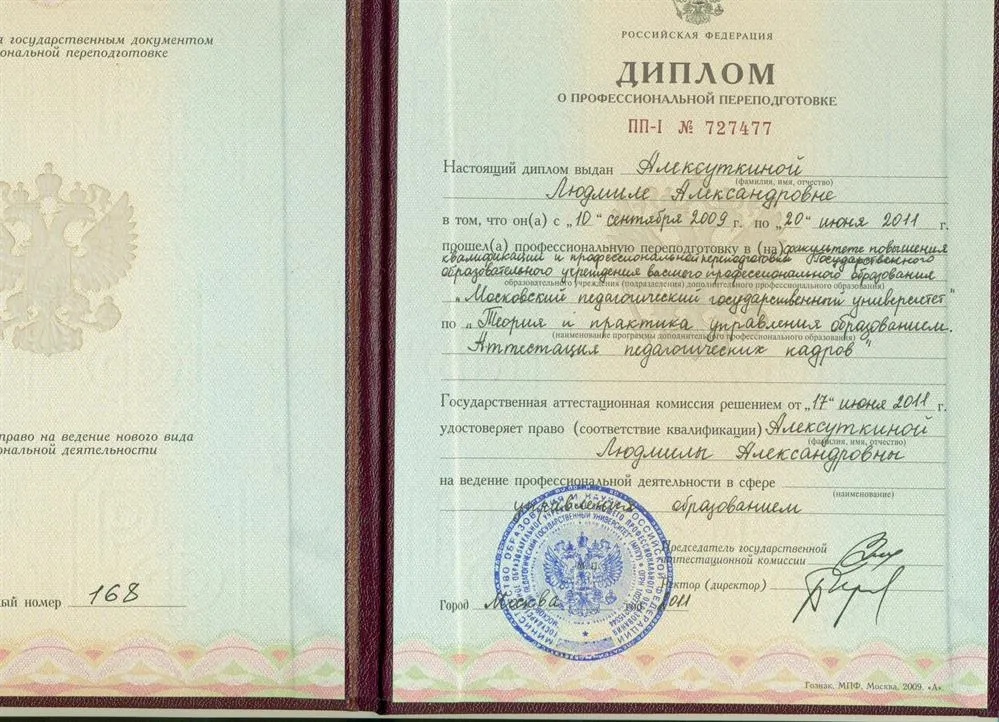 я государственным документом
ональной переподготовке
право на ведение нового вида
ональной деятельности
ный номер 168
РОССИЙСКАЯ ФЕДЕРАЦИЯ
ДИПЛОМ
О ПРОФЕССИОНАЛЬНОЙ ПЕРЕПОДГОТОВКЕ
ПП-I № 727477
Настоящий диплом выдан Алексуткиной
(фамилия, имя, отчество)
Людмиле Александровне
в том, что он(а) с „10" сентября 2009 г. по „20" июня 2011 г.
прошел(а) профессиональную переподготовку в (на) факультете повышения
квалификации и профессиональной переподготовки Государственного
образовательного учреждения высшего профессионального образования
образовательного учреждения (подразделения) дополнительного профессионального образования)
„Московский педагогический государственный университет"
по „Теория и практика управления образованием.
(наименование программы дополнительного профессионального образования)
Аттестация педагогических кадров"
Государственная аттестационная комиссия решением от „17" июня 2011 г.
удостоверяет право (соответствие квалификации) Алексуткиной
(фамилия, имя, отчество)
Людмилы Александровны
на ведение профессиональной деятельности в сфере
(наименование)
управления образованием
Председатель государственной
аттестационной комиссии
Ректор (директор)
М.П.
Город Москва год 2011
МИНИСТЕРСТВО ОБРАЗОВАНИЯ И НАУКИ РОССИЙСКОЙ ФЕДЕРАЦИИ
Гознак, МПФ, Москва, 2009, «А».